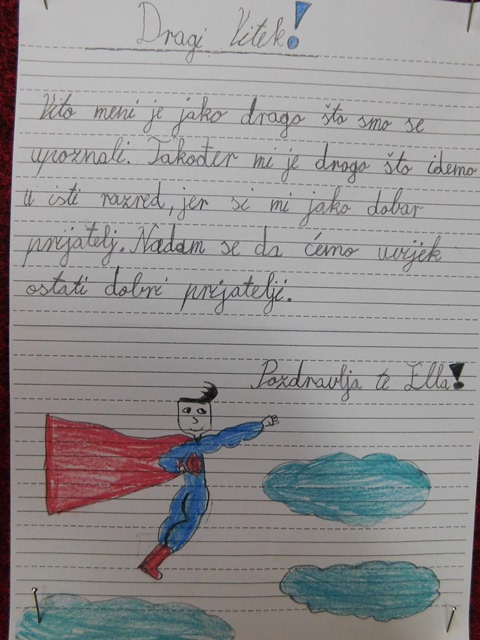 Dragi Vitek!
Vito meni je jako drago što smo se
upoznali. Također mi je drago što idemo
u isti razred, jer si mi jako dobar
prijatelj. Nadam se da ćemo uvijek
ostati dobri prijatelji.
Pozdravlja te Ella!